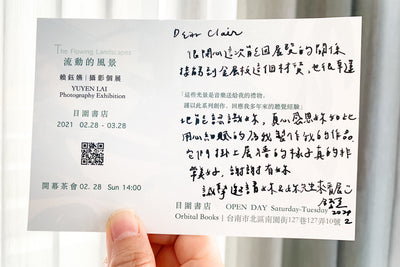 The Flowing Landscapes
流動的風景
賴鈺嬿|攝影個展
YUYEN LAI
Photography Exhibition
日圍書店
2021 02.28 - 03.28
開幕茶會 02.28 Sun 14:00
Dear Clair
很開心這次藉因展覽的關係
接觸到金屬板這個材質,也很幸運
「這些光景是音樂送給我的禮物。
謹以此系列創作,回應我多年來的聽覺經驗」
地能認識妳,真心感恩妳如此
用心細膩的為我製作我的作品
它們掛上展牆的樣子真的非
常好,謝謝有妳
誠摯邀請妳
來看展
2021
2
日圍書店 OPEN DAY Saturday-Tuesday
Orbital Books | 台南市北區南園街127巷127弄10號